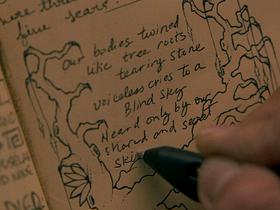 five years?
Our bodies twined
like tree roots
tearing stone
voiceless cries to a
Blind sky
Heard only by our
shared and secret
skin